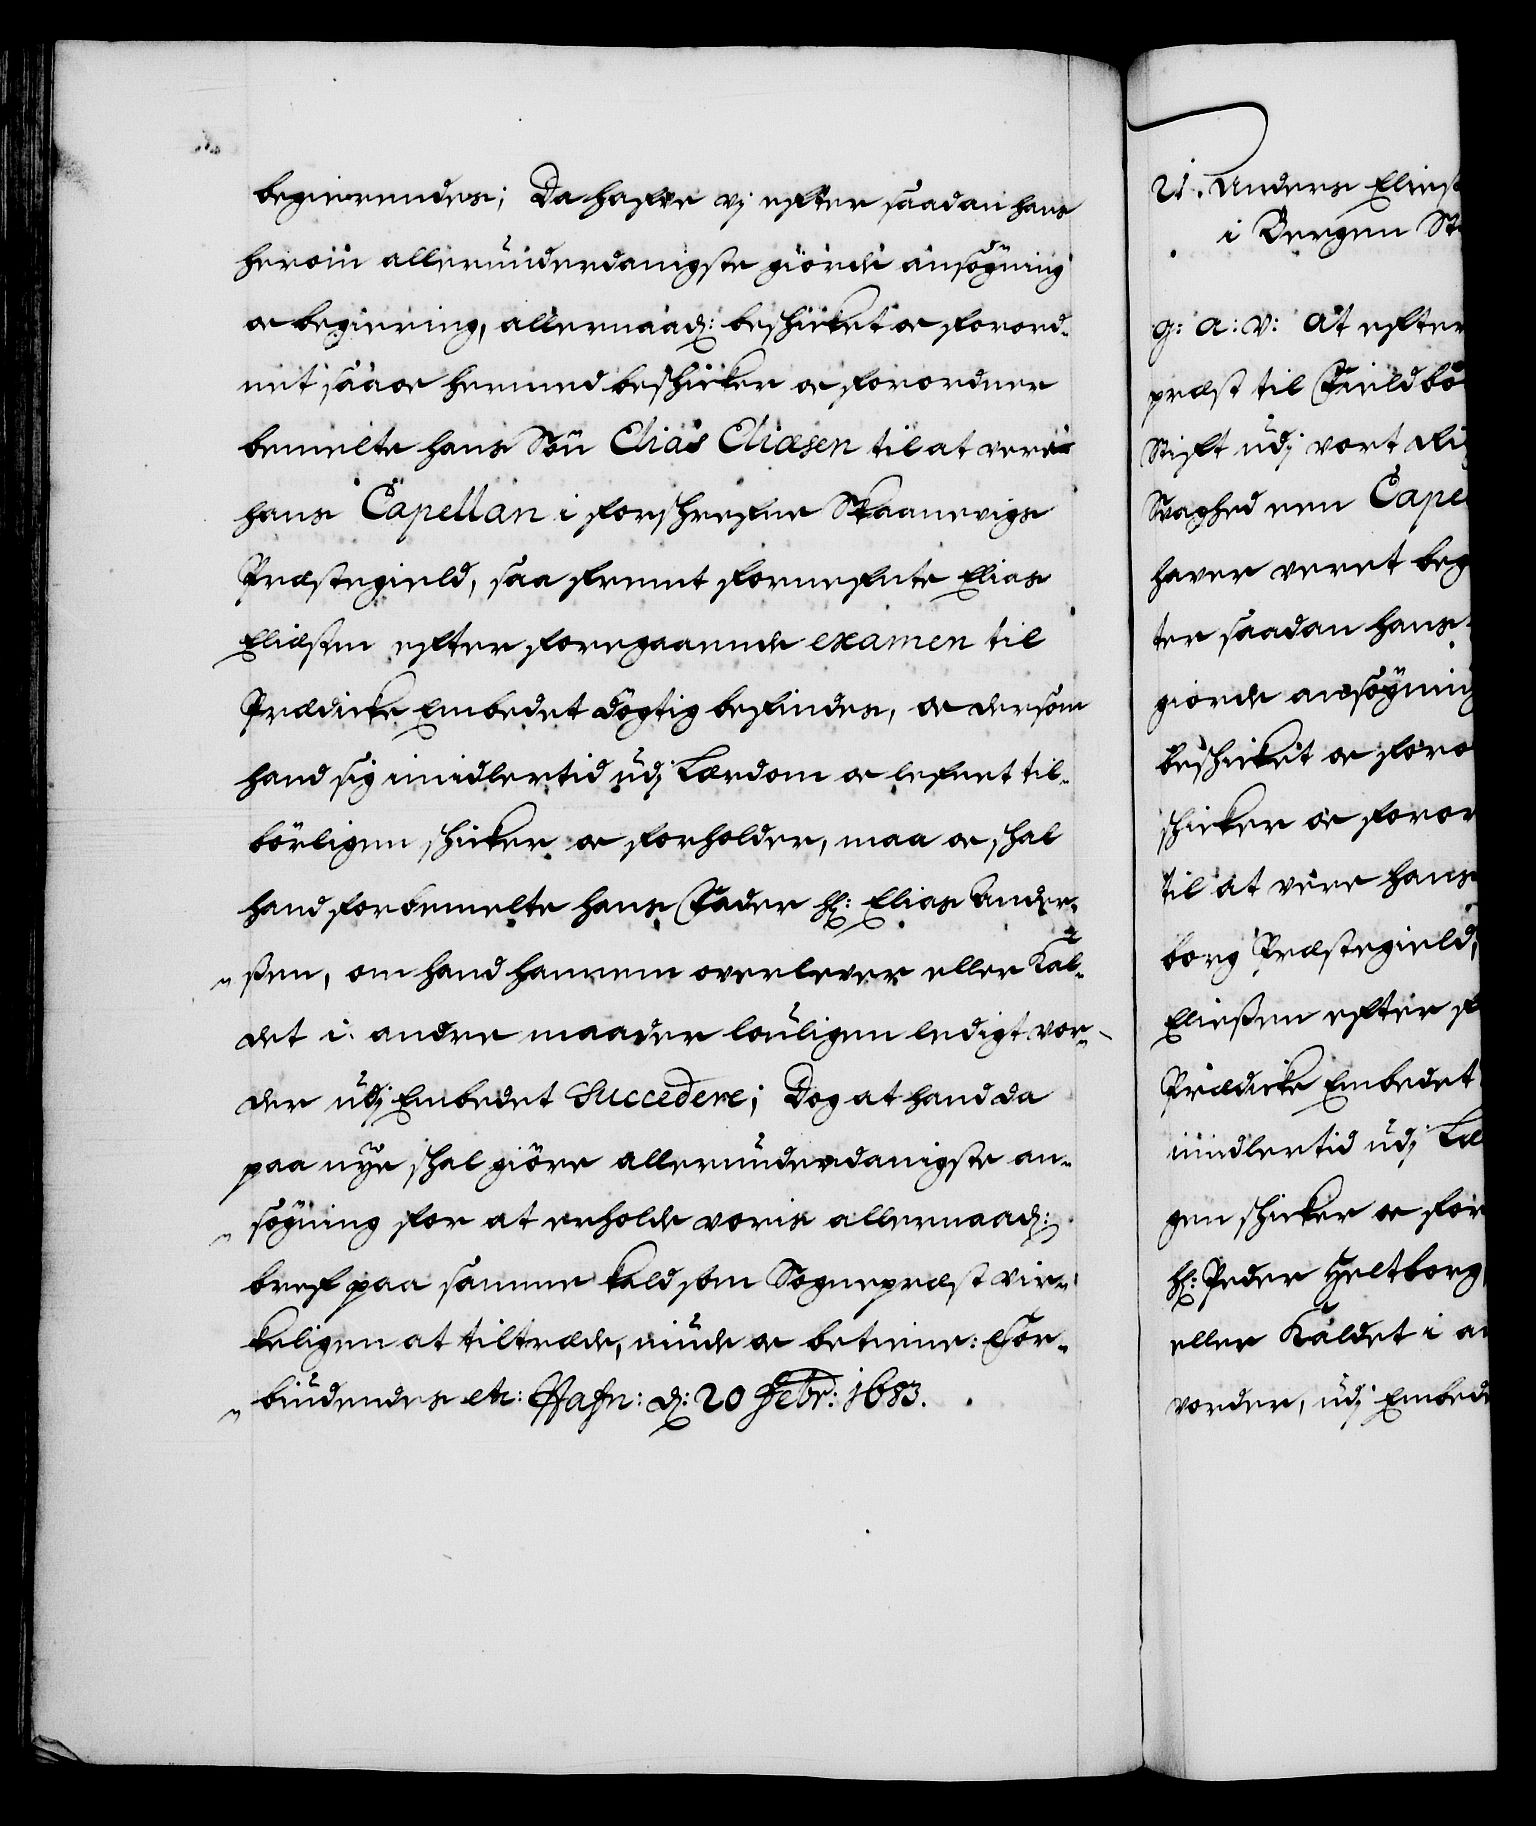 begierendes; Da hafve vj efter saadan hans
herom allerunderdanigste giorde ansøgning
oc begiering, allernaad: beskicket oc forord-
nit saa oc hermed beskicker oc forordner
bemelte hans Søn Elias Eliæsen til at være
hans Capellan i forskrefne Skaanevigs
Præstegield, saa fremt fornefnte Elias
Eliæsen efter foregaaende examen til
Prædicke Embedet døgtig befindes, oc dersom
hand sig imidlertid udj Lærdom oc lefnet til-
børligen skicker oc forholder, maa oc skal
hand forbemelte hans Fader Hr: Elias Ander-
ßen, om hand hannem overlever eller Kal-
det i andre maader louligen ledigt vor-
der udj Embedet Succedere; Dog at hand da
paa nye skal giøre allerunderdanigste an-
søgning for at erholde voris allernaad:
bref paa samme kald som Sognepræst vir-
keligen at tiltræde, niude oc betiene: For-
biudendes etc: Hafn: d: 20 Febr: 1683.
21. Anders Elies
i Bergen St
G: A: V: At efter
præst til Fieldbo
Stift udj vort Ri
Svaghed een Cape
haver veret beg
ter saadan hans
giorde ansøgning
beskicket oc foro
skicker oc foror
til at være hans
borg Præstegield,
Eließen efter f
Prædicke Embedet
imidlertid udj Læ
gen skicker oc for
Hr: Peder Heltborg
eller Kaldet i a
vorder, udj Embede